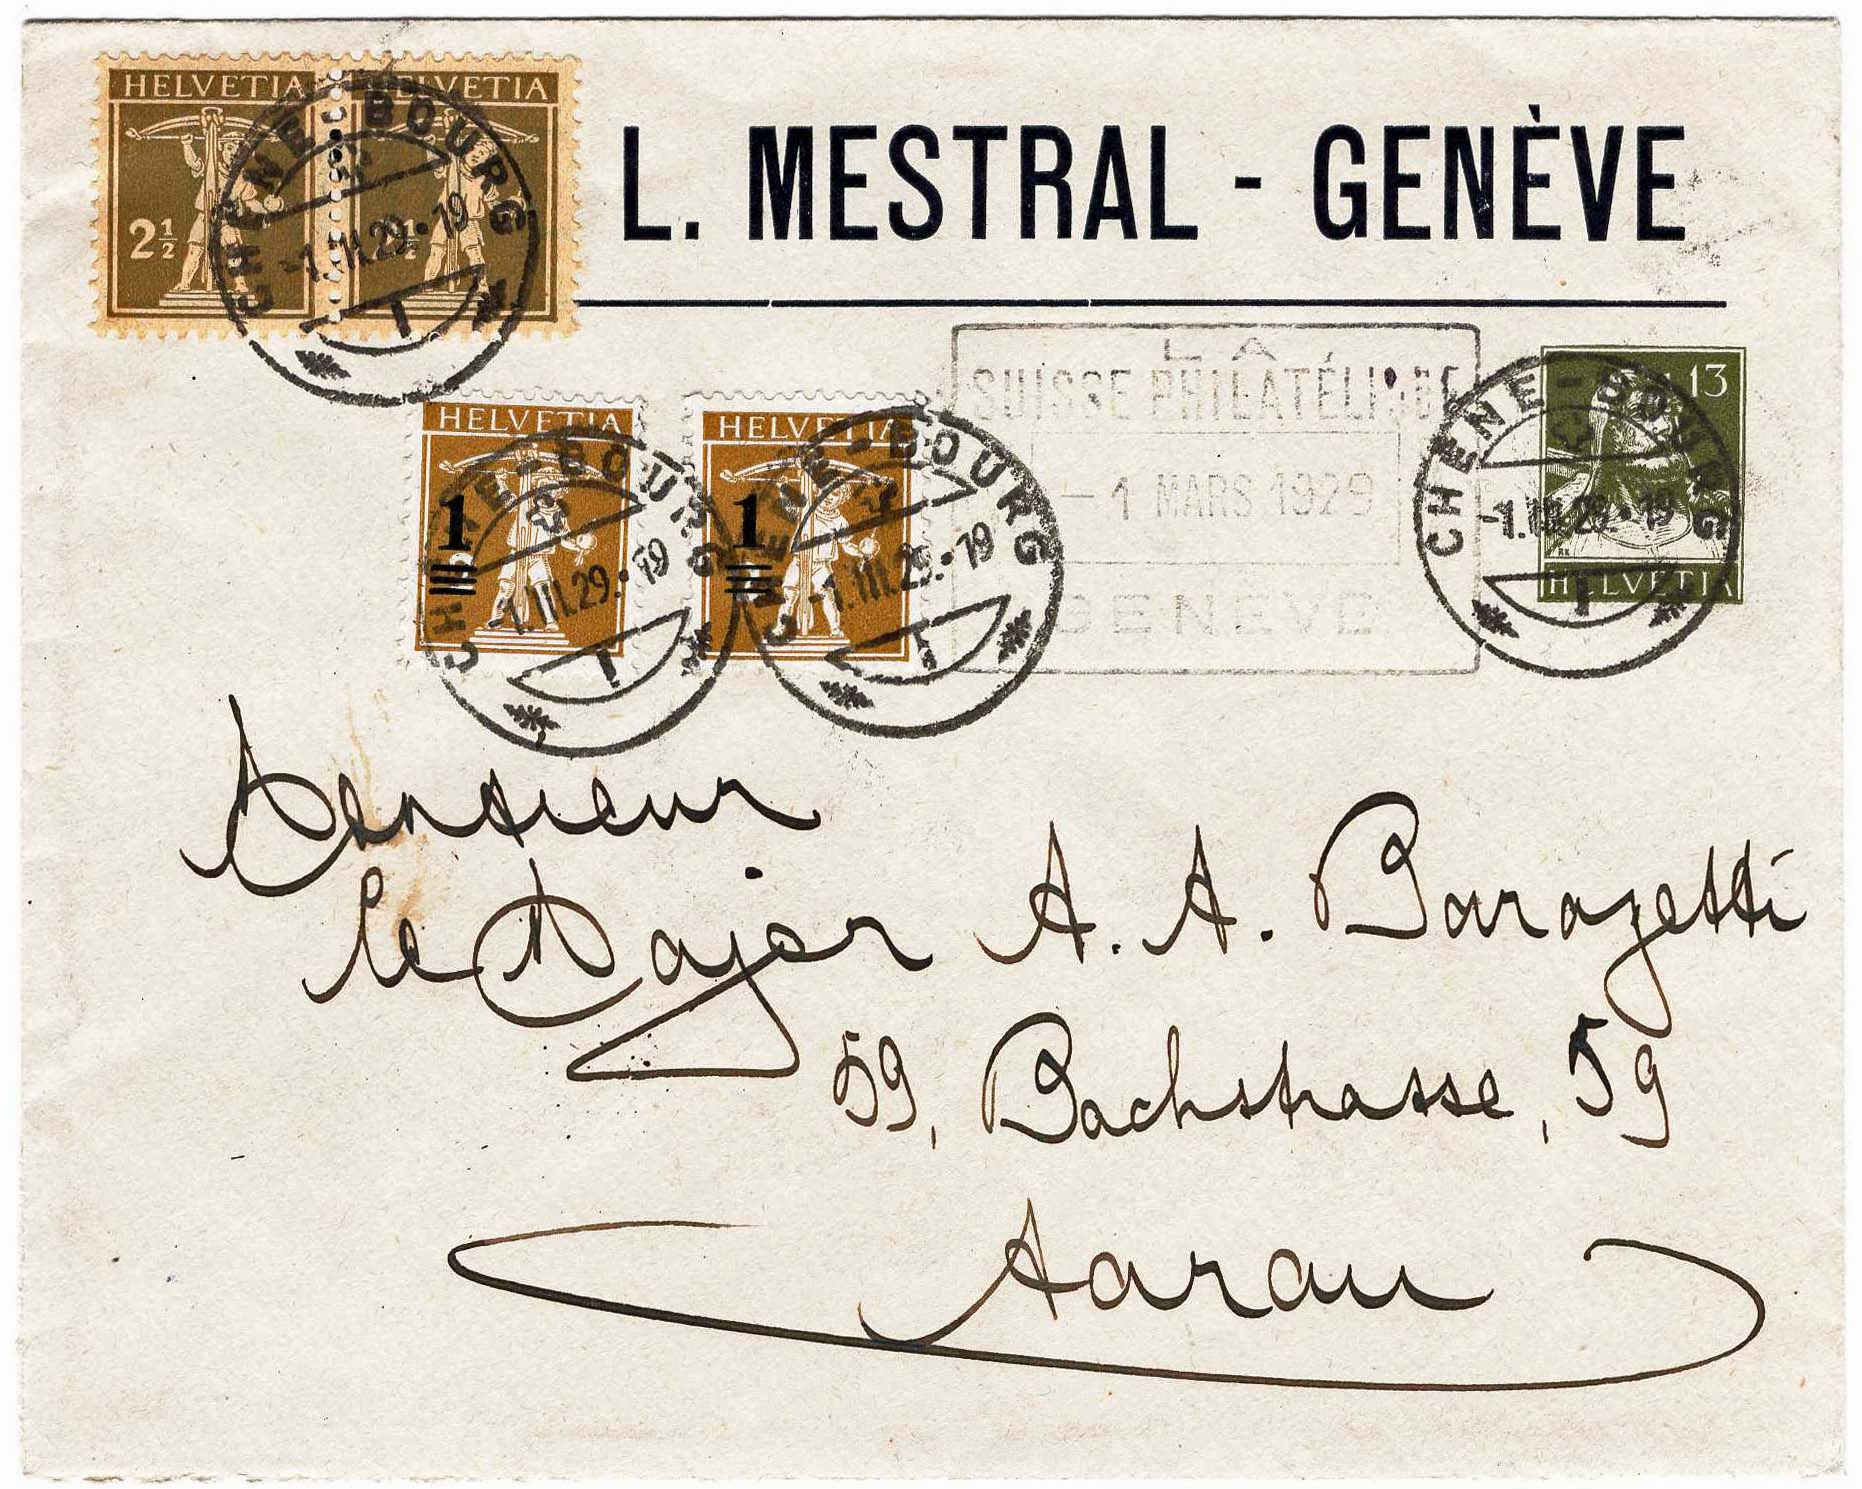 HELVETIA HELVETIA
2½ 2½
CHENE-BOURG
-1.III.29.-19
L. MESTRAL - GENÈVE
HELVETIA
1
CHENE-BOURG
-1.III.29.-19
HELVETIA
1
CHENE-BOURG
-1.III.29.-19
LA
SUISSE PHILATÉLIQUE
- 1 MARS 1929
GENEVE
13
HELVETIA
CHENE-BOURG
-1.III.29.-19
Monsieur
le Major A. A. Barazetti
59, Bachstrasse, 59
Aarau